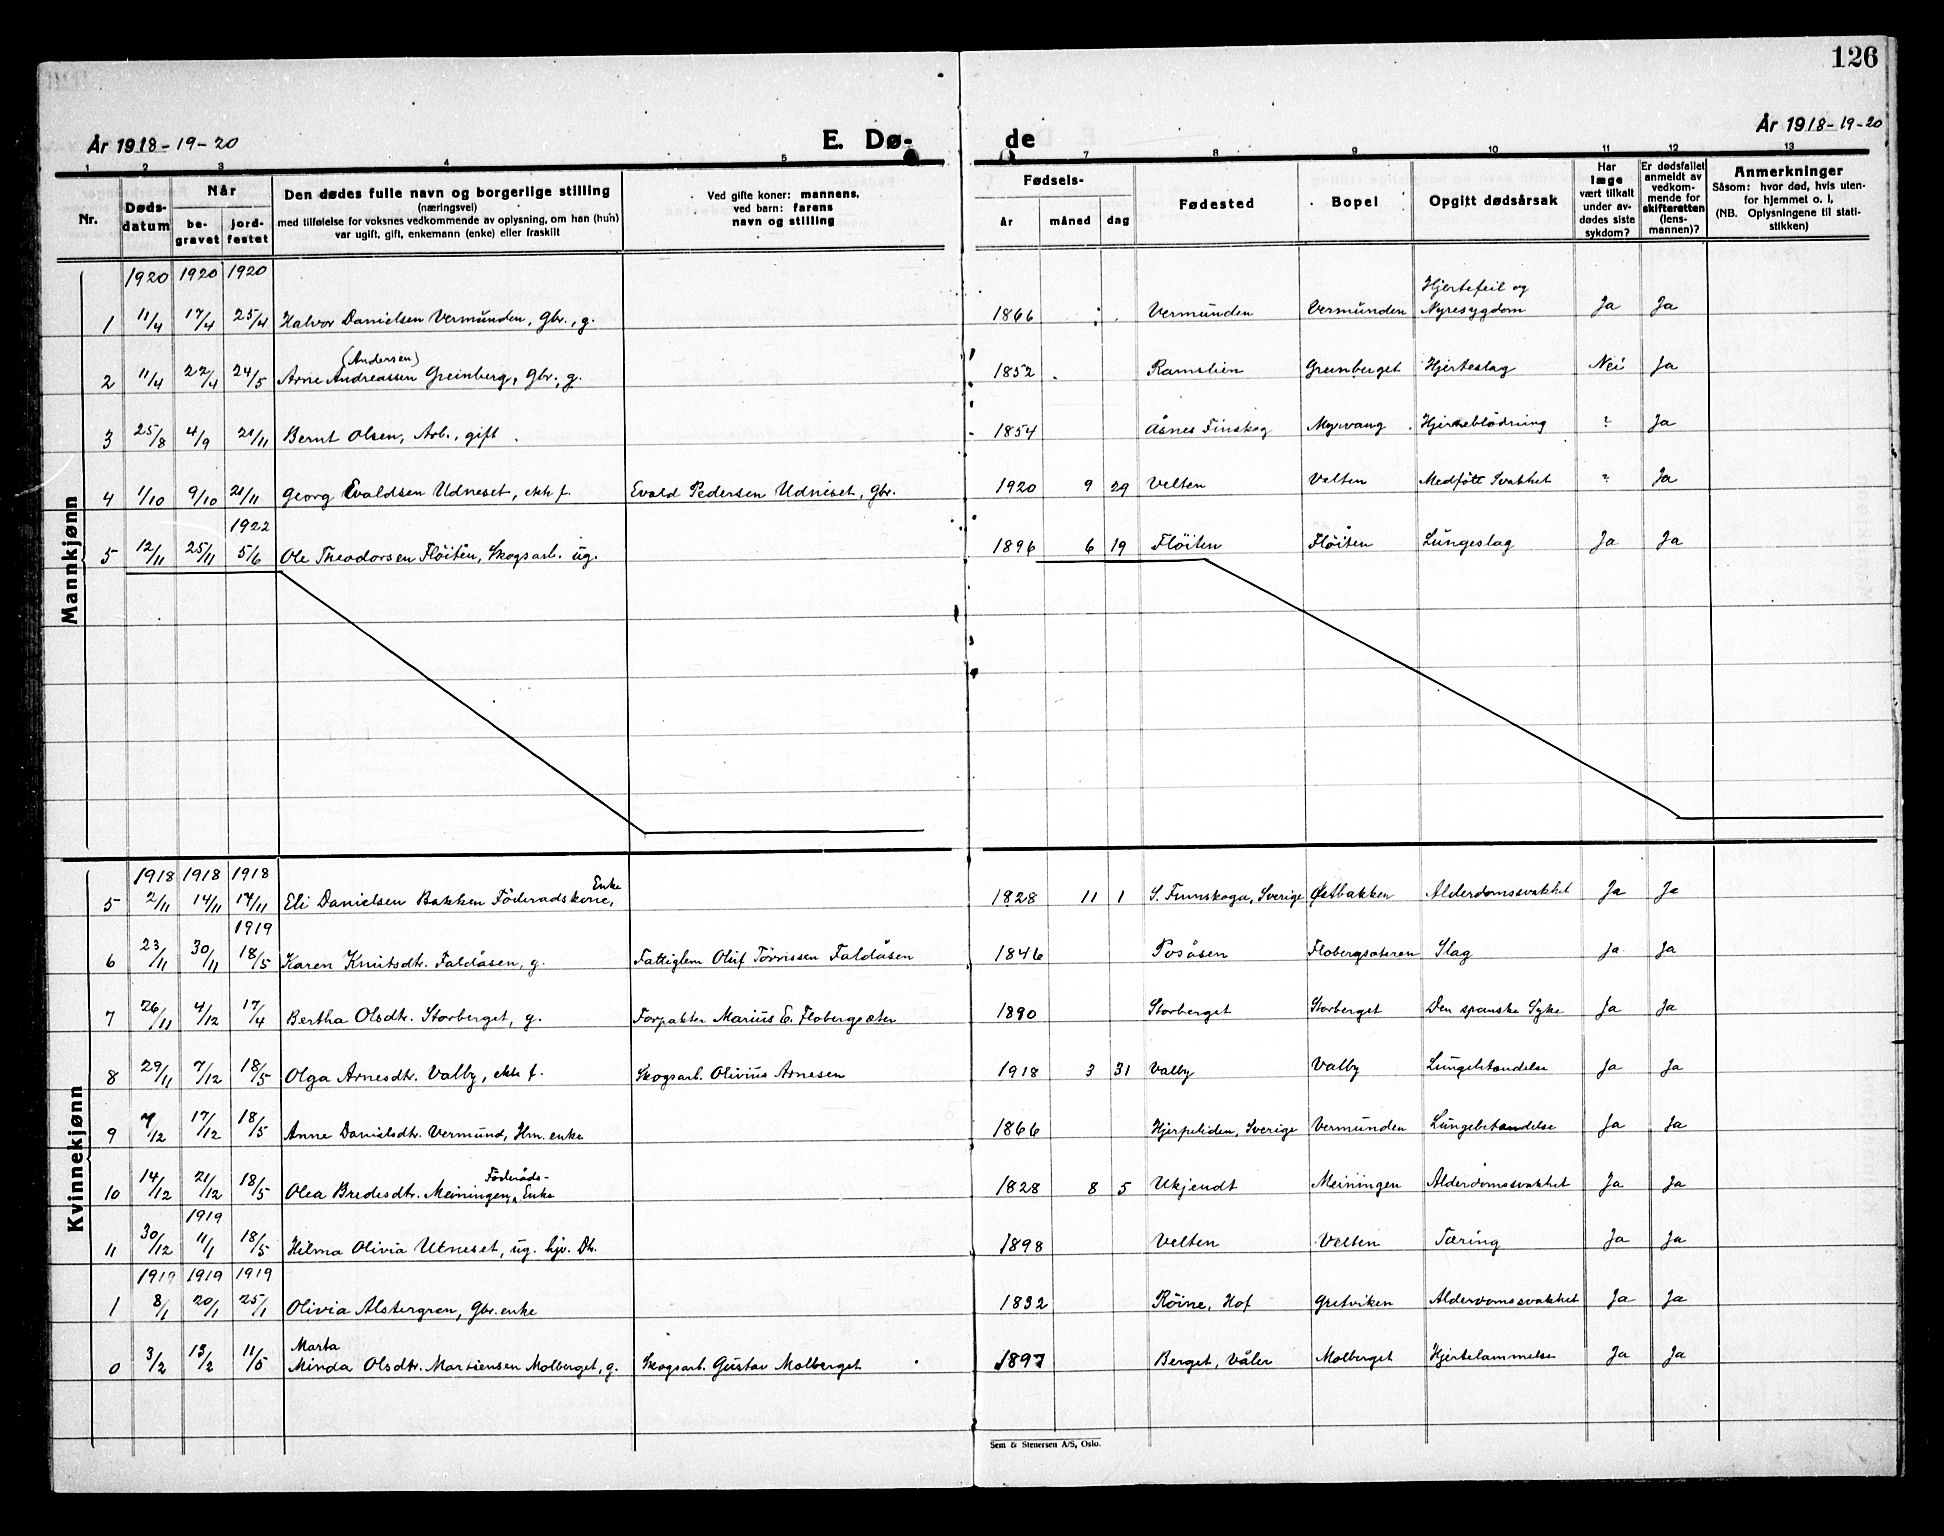 126
År 1918-19-20 E. Dø- de År 1918-19-20
1 2 3 4 5 7 8 9 10 11 12 13
Nr. Dødsdatum Når begravet jordfestet
Den dødes fulle navn og borgerlige stilling
(næringsvei)
med tilføielse for voksnes vedkommende av oplysning, om han (hun)
var ugift, gift, enkemann (enke) eller fraskilt
Ved gifte koner: mannens,
ved barn: farens
navn og stilling
Fødsels-
år måned dag
Fødested Bopel Opgitt dødsårsak
Har læge vært tilkalt under avdødes siste sykdom?
Er dødsfallet anmeldt av vedkommende for skifteretten (lensmannen)?
Anmerkninger
Såsom: hvor død, hvis utenfor hjemmet o. l,
(NB. Oplysningene til statistikken)
Mannkjønn
1920 1920 1920
1 11/4 17/4 25/4 Halvor Danielsen Vermunden, Gbr., g. 1866 Vermunden Vermunden Hjertefeil og Nyresygdom Ja Ja
(Andersen)
2 11/4 22/4 24/5 Arne Andreassen Greinberg, Gbr., g. 1852 Ramslien Greinberget Hjerteslag Nei Ja
3 25/8 4/9 21/11 Bernt Olsen, Arb., gift 1854 Åsnes Finskog Myrvang Hjerneblödning ? Ja
4 1/10 9/10 21/11 Georg Evaldsen Udneset, ekte f. Evald Pedersen Udneset, Gbr. 1920 9 29 Velten Velten Medfött Svakhet ? Ja
1922
5 12/11 25/11 5/6 Ole Theodorsen Flöiten, Skogsarb. ug. 1896 6 19 Flöiten Flöiten Lungeslag Ja Ja
Kvinnekjønn
1918 1918 1918
5 2/11 14/11 14/11 Eli Danielsen Bakken Föderadskone, Enke 1828 11 1 S. Finnskoga, Sverige Østbakken Alderdomssvakhet Ja Ja
1919
6 23/11 30/11 18/5 Karen Knutsdtr. Faldåsen, g. Fattiglem Oluf Törrissen Faldåsen 1846 Posåsen Flobergsæteren Slag Ja Ja
7 26/11 4/12 17/4 Bertha Olsdtr. Storberget, g. Forpakter Marius E. Flobergsæter 1890 Storberget Storberget Den spanske Syke Ja Ja
8 29/11 7/12 18/5 Olga Arnesdtr. Valby, ekte f. Skogsarb. Olivius Arnesen 1918 3 31 Valby Valby Lungebetændelse Ja Ja
9 7/12 17/12 18/5 Anne Danielsdtr. Vermund, Hm. enke 1866 Hjerpeliden, Sverige Vermunden Lungebetændelse Ja Ja
10 14/12 21/12 18/5 Olea Bredesdtr. Meiningen, Föderåds-Enke 1828 8 5 Ukjendt Meiningen Alderdomssvakhet Ja Ja
1919
11 30/12 11/1 18/5 Hilma Olivia Utneset, ug. hjv. Dtr. 1898 Velten Velten Tæring Ja Ja
1919 1919 1919
1 8/1 20/1 25/1 Olivia Alstergren, Gbr. enke 1832 Röine, Hof Gretviken Alderdomssvakhet Ja Ja
Marta
0 3/2 13/2 11/5 Minda Olsdtr. Martiensen Molberget, g. Skogsarb. Gustav Molberget 1897 Berget, Våler Molberget Hjertelammelse Ja Ja
Sem & Stenersen A/S, Oslo.